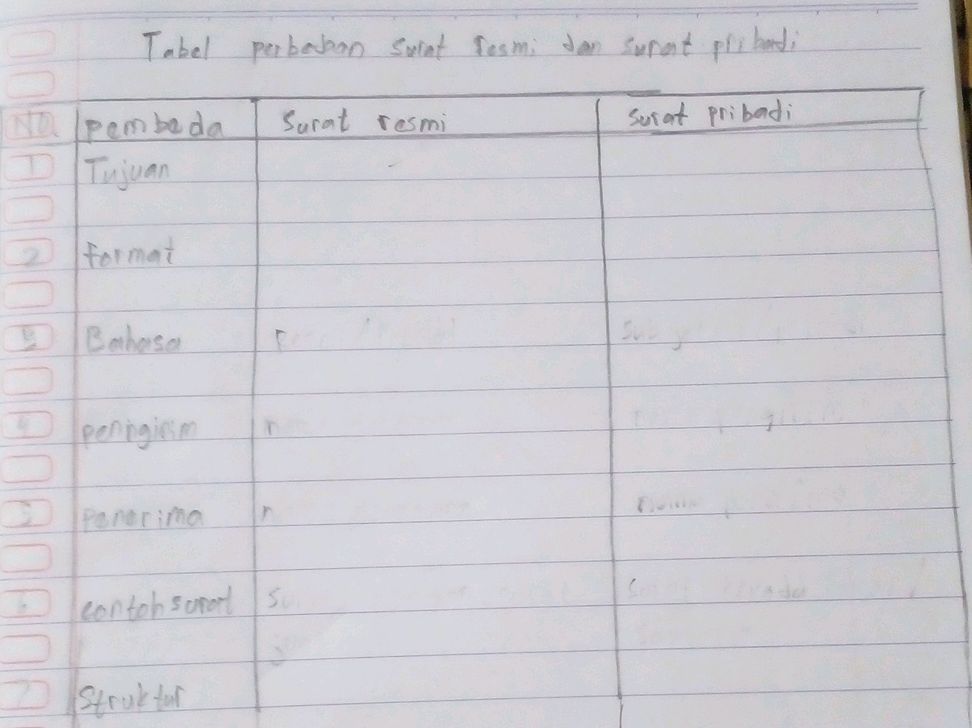 Tabel perbedaan surat resmi dan surat pribadi
No pembeda surat resmi surat pribadi
1 Tujuan
2 format
3 Bahasa
4 pengirim
5 penerima
6 contoh surat
7 Struktur